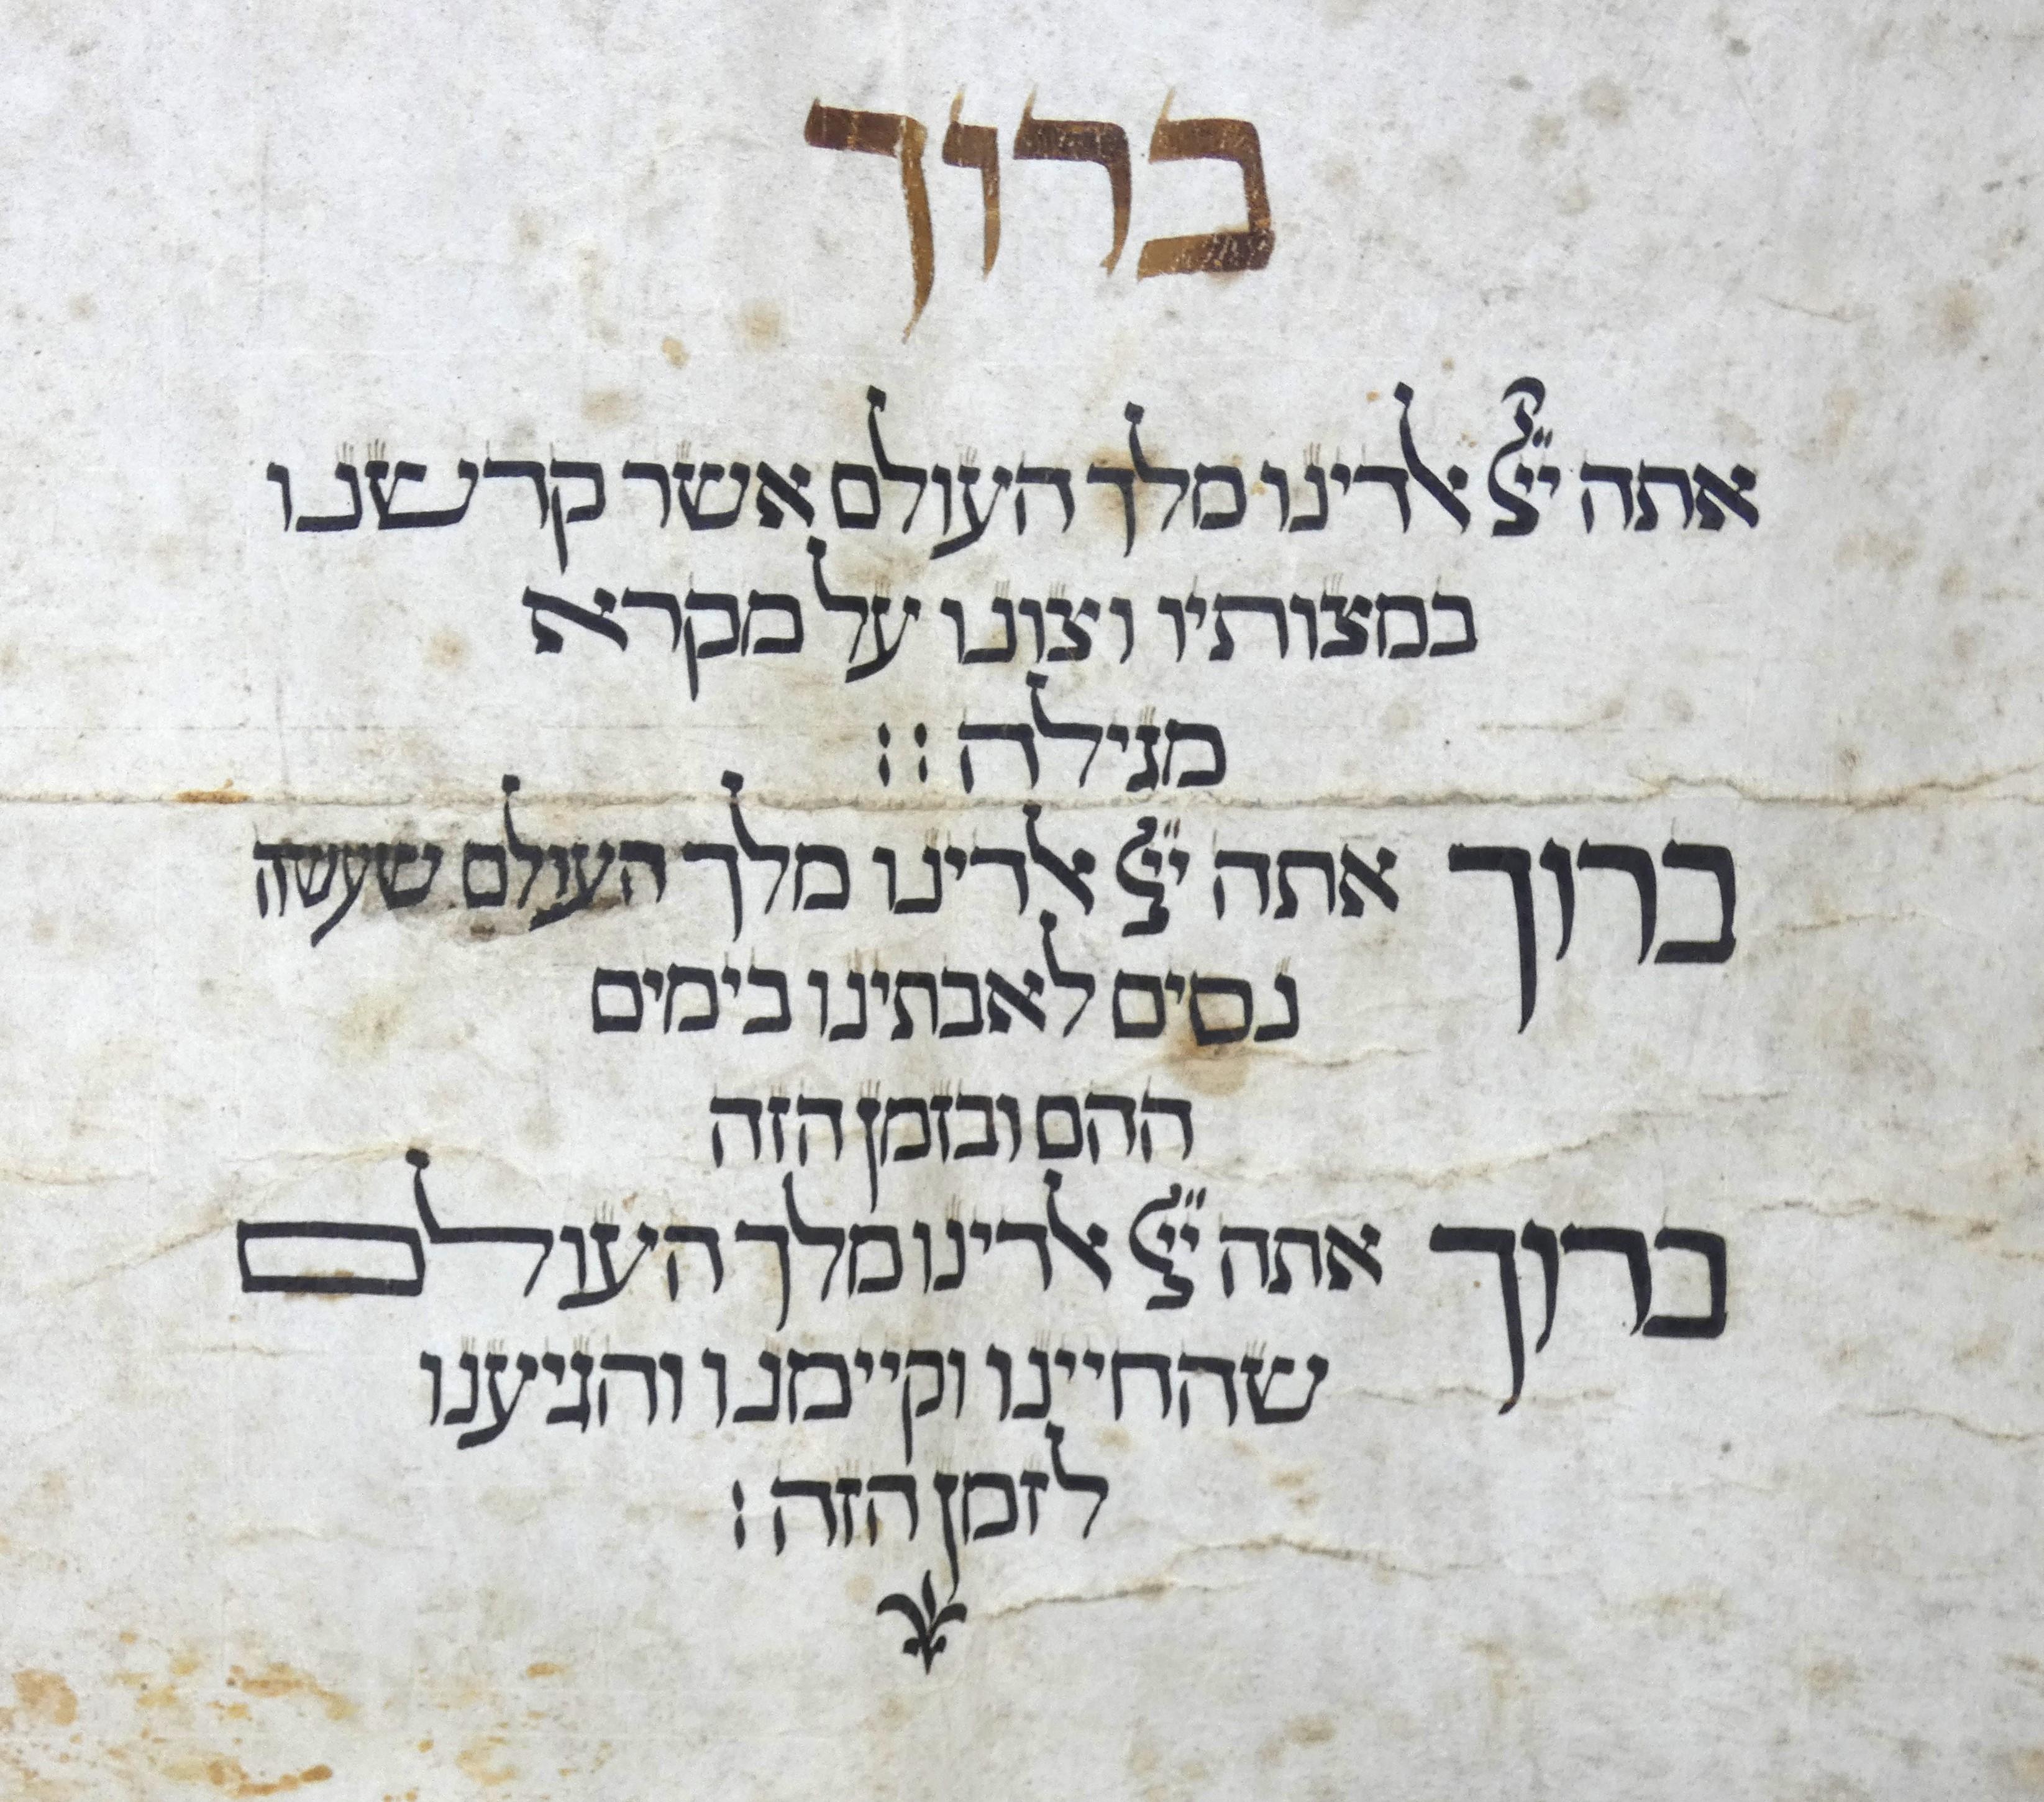 ברוך
אתה יי אלדינו מלך העולם אשר קדשנו
במצותיו וצונו על מקרא
מגילה ::
ברוך אתה יי אלדינו מלך העולם שעשה
נסים לאבתינו בימים
ההם ובזמן הזה
ברוך אתה יי אלדינו מלך העולם
שהחיינו וקיימנו והגיענו
לזמן הזה :